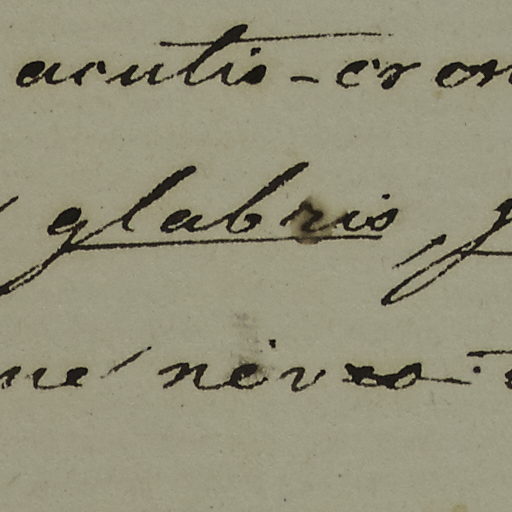 acutis-cron
glabris, g
ne nerves-